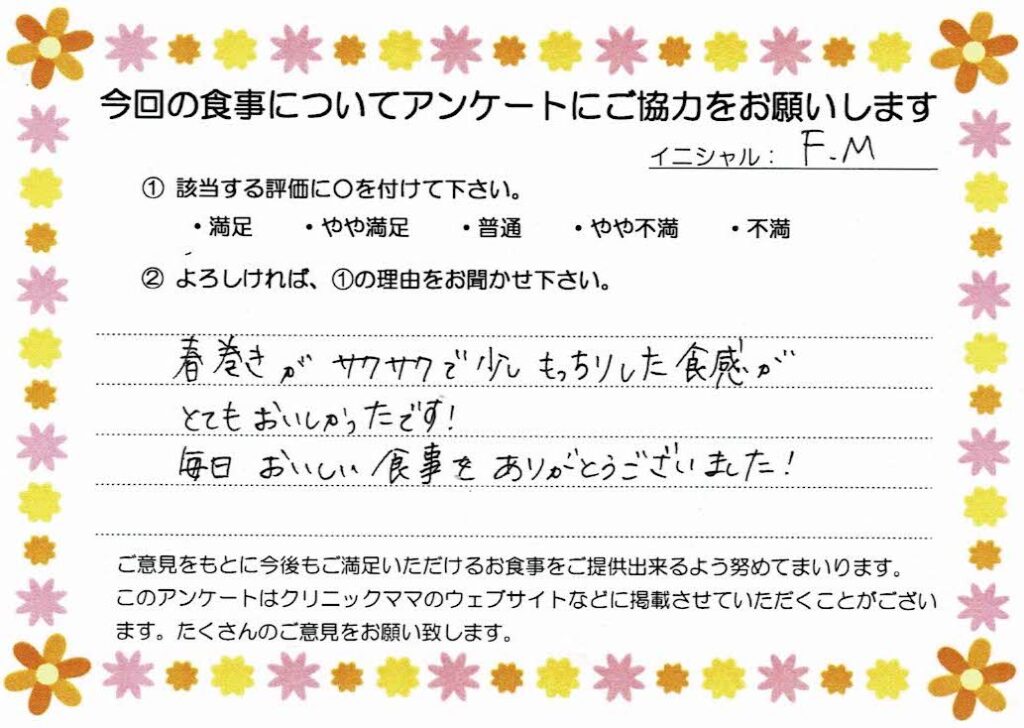 今回の食事についてアンケートにご協力をお願いします
イニシャル： F.M
① 該当する評価に〇を付けて下さい。
・満足 ・やや満足 ・普通 ・やや不満 ・不満
② よろしければ、①の理由をお聞かせ下さい。
春巻きが サクサクで少し もっちりした食感が
とてもおいしかったです!
毎日 おいしい食事を ありがとうございました!
ご意見をもとに今後もご満足いただけるお食事をご提供出来るよう努めてまいります。
このアンケートはクリニックママのウェブサイトなどに掲載させていただくことがござい
ます。たくさんのご意見をお願い致します。